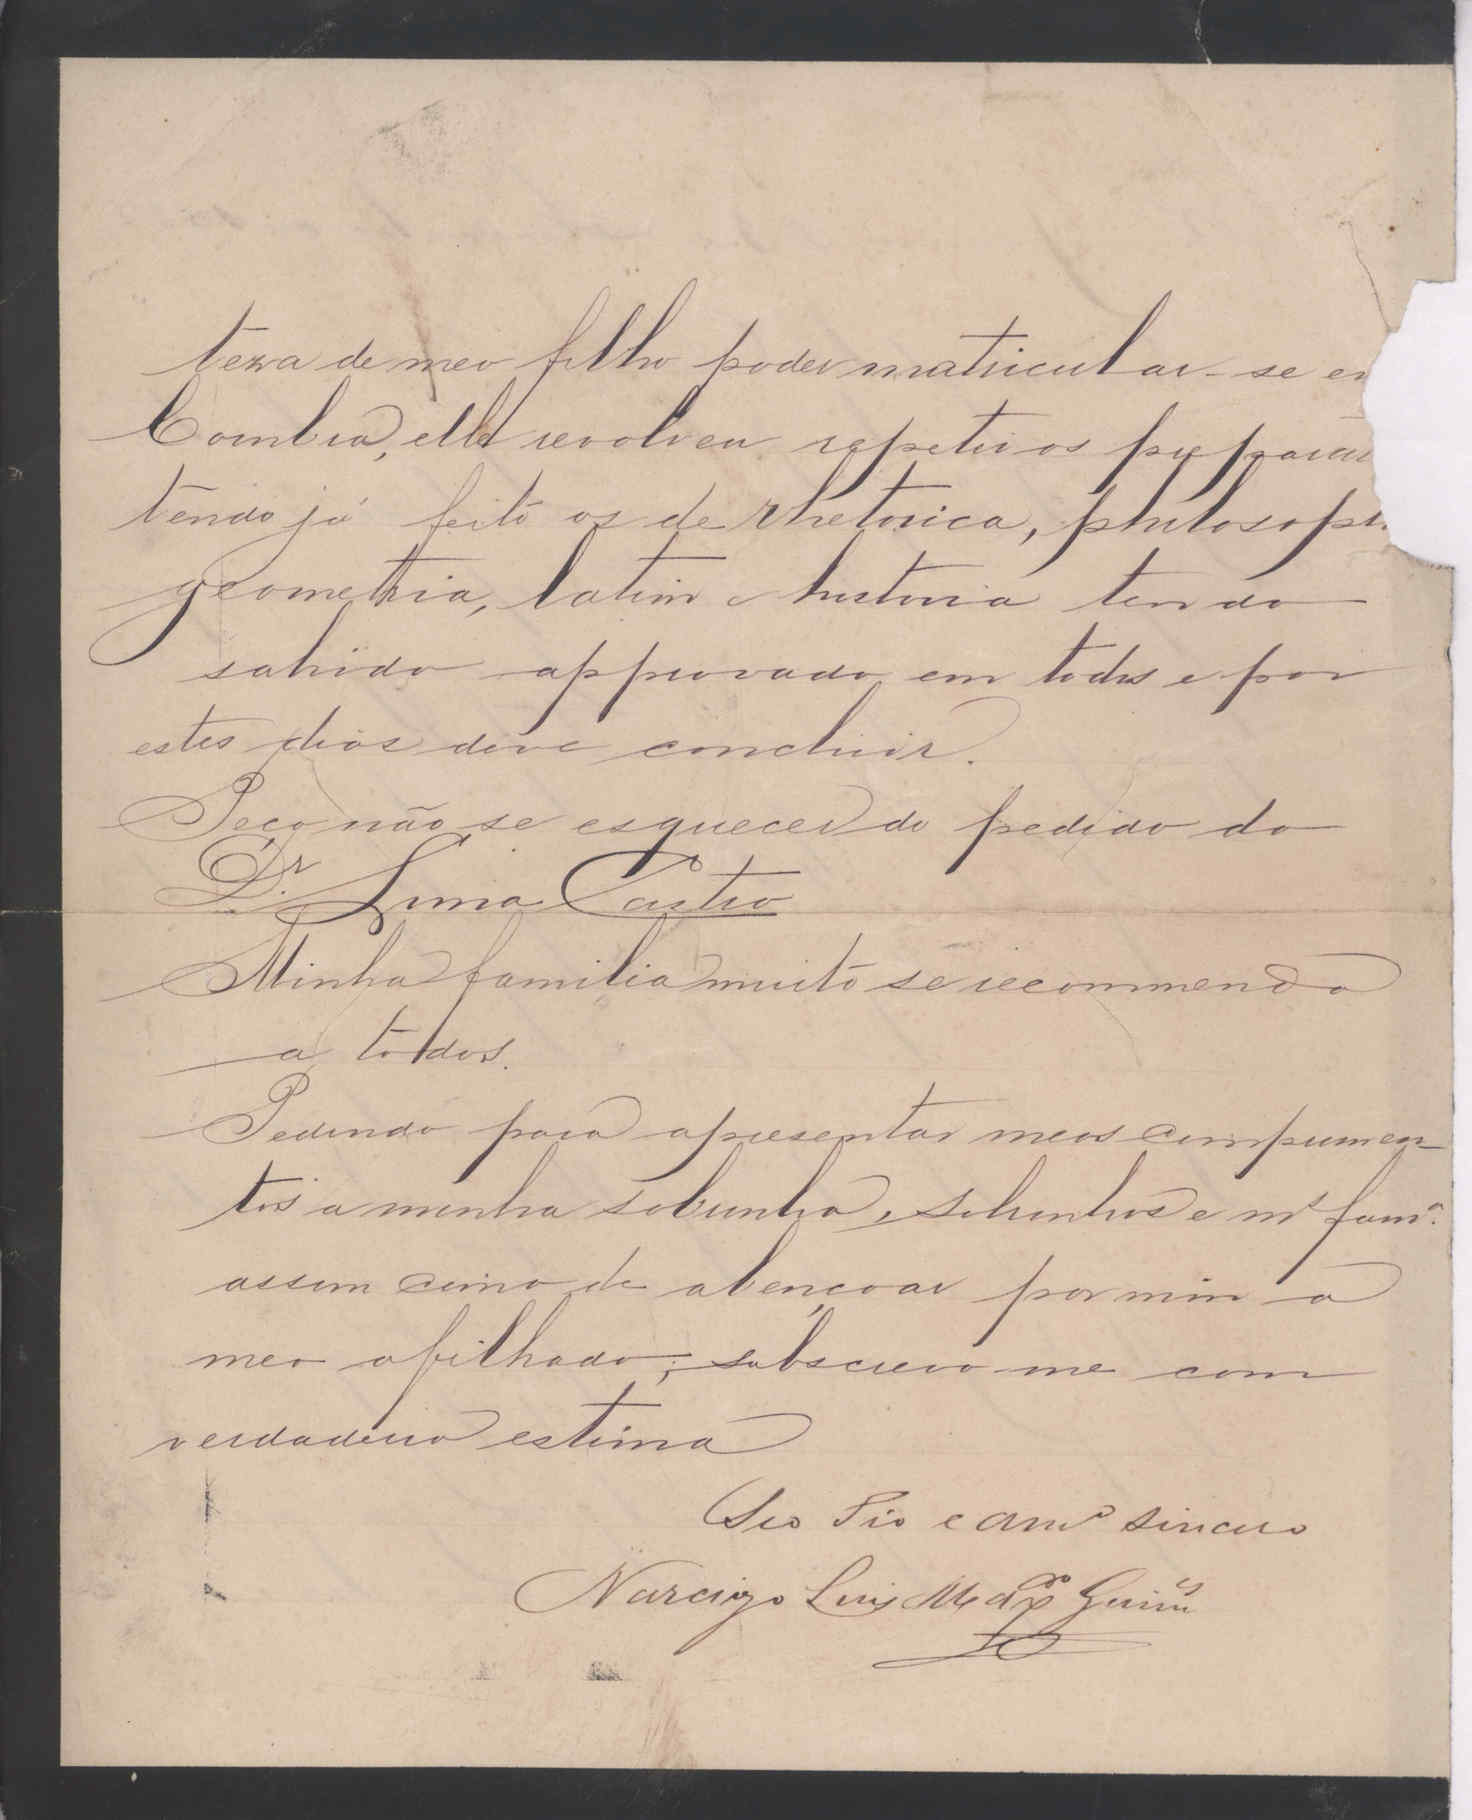 teza de meo filho poder matricular-se e
Coimbra, elle resolveu repetir os prepara
tendo já feito os de rhetorica, philosoph
geometria, latim e historia tendo
sahido approvado em todos e por
estes dias deve concluir.
Peço não se esquecer do pedido do
Dr. Lima Castro
Minha familia muito se recommenda
a todos.
Pedindo para apresentar meos comprimen-
tos a minha sobrinha, sobrinhos e mª famª.
assim como de abençoar por mim a
meo afilhado; subscrevo me com
verdadeira estima
Seo Tio e amº sincero
Narcizo Luis Guimes